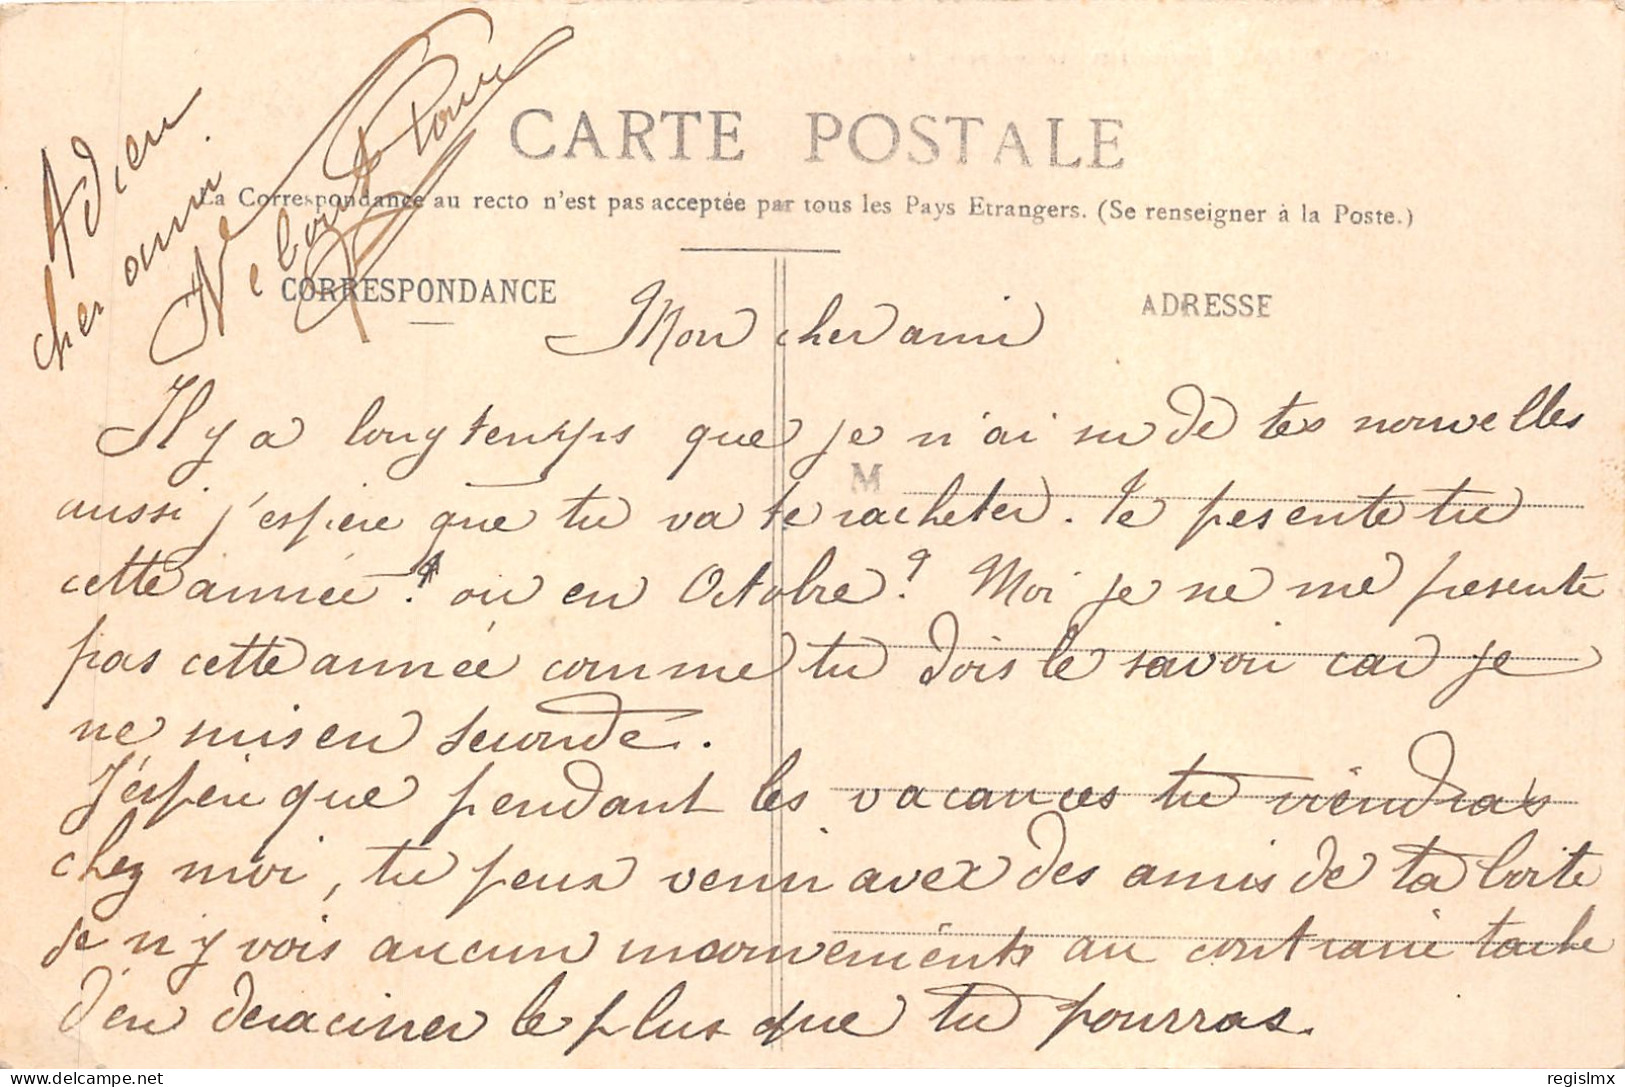 Adieu
cher ami.
CARTE POSTALE
La Correspondance au recto n'est pas acceptée par tous les Pays Etrangers. (Se renseigner à la Poste.)
CORRESPONDANCE
ADRESSE
M
Mon cher ami
Il y a longtemps que je n'ai su de tes nouvelles
aussi j'espère que tu va te racheter. Te présente tu
cette année ? ou en Octobre ? Moi je ne me présente
pas cette année comme tu dois le savoir car je
ne suis en seconde.
J'espère que pendant les vacances tu viendras
chez moi, tu peux venir avex des amis de ta boite
Je n'y vois aucun mouvements au contraire tache
d'en deraciner le plus que tu pourras.
regislmx